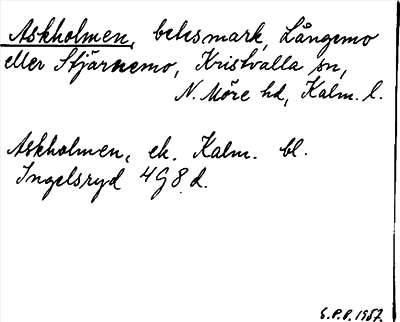 Askholmen, betesmark, Långemo
eller Stjärnemo, Kristvalla sn,
N. Möre hd, Kalm. l.
Askholmen, ek. Kalm. bl.
Ingelsryd 4G8d.
S.P.P. 1957.